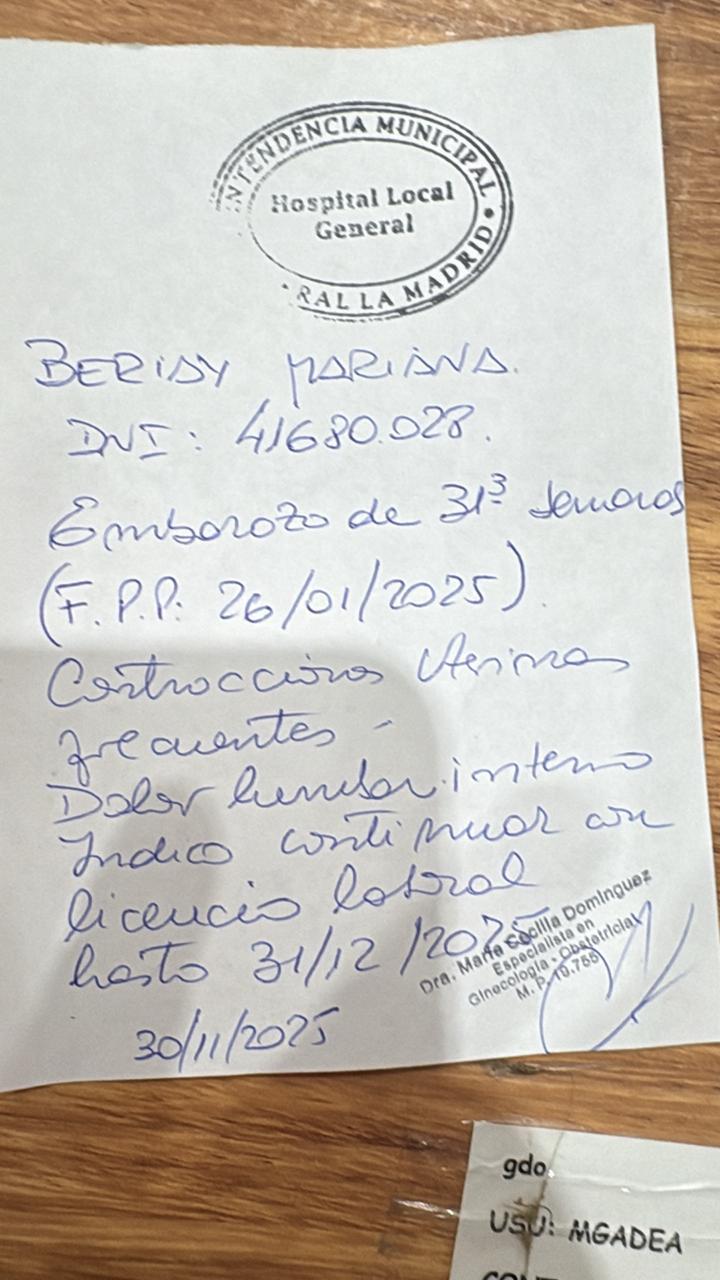 INTENDENCIA MUNICIPAL
Hospital Local
General
RAL LA MADRID
BERIAY MARIANA.
DNI: 41680.028.
Embarazo de 31.3 semanas
(F.P.P: 26/01/2025).
Contracciones Uterinas
frecuentes -
Dolor lumbar. intenso
Indico continuar con
licencia laboral
hasta 31/12/2025
Dra. María Cecilia Dominguez
Especialista en
Ginecología - Obstetricia
M. P. 19.755
30/11/2025
gdo
USU: MGADEA